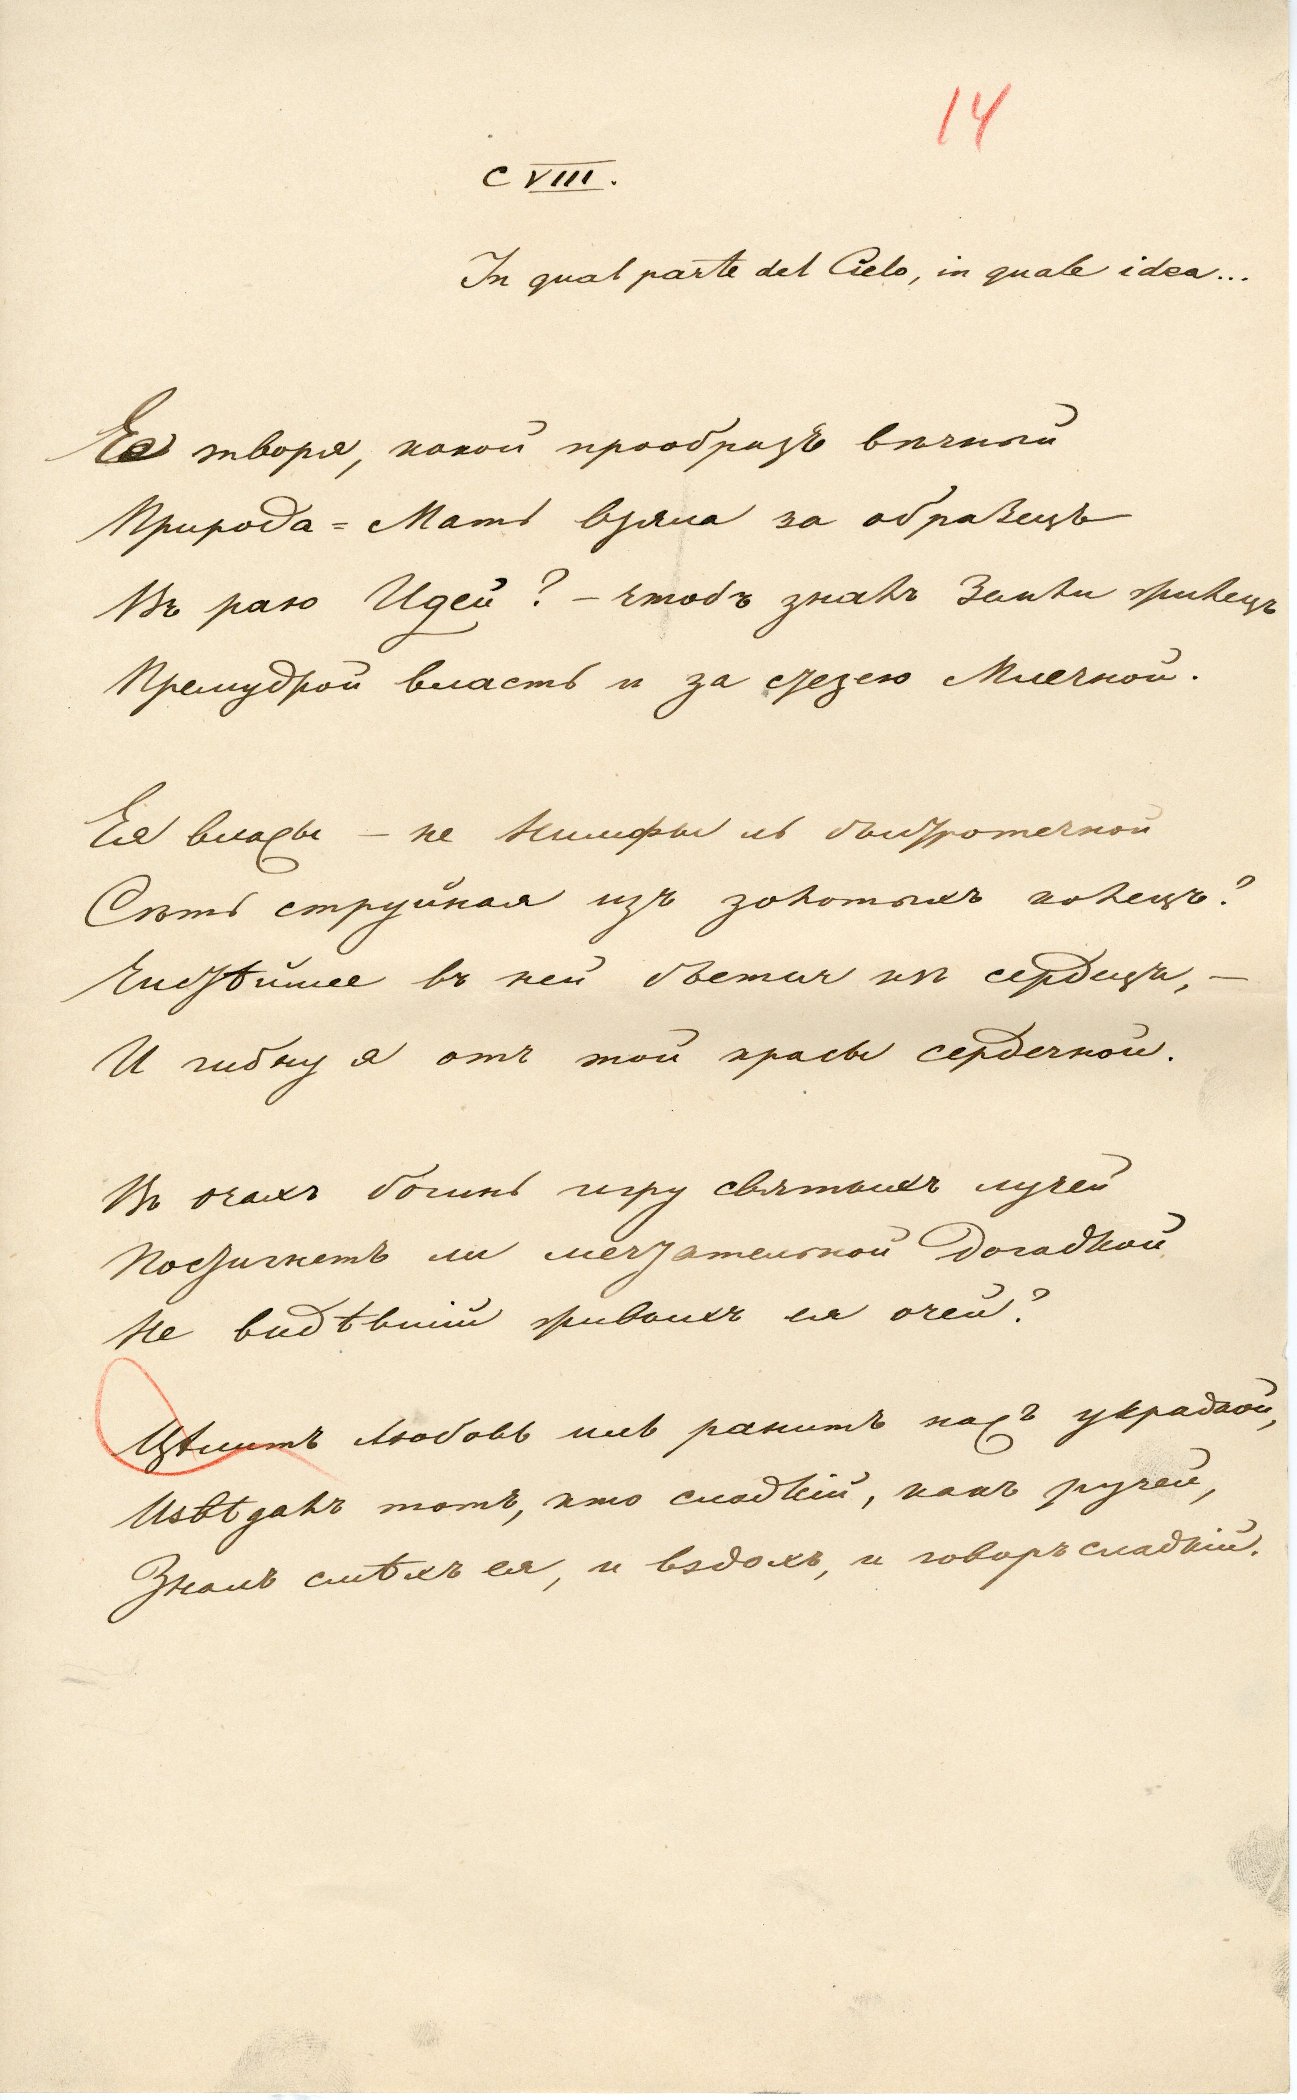 14
CVIII.
In qual parte del Cielo, in quale idea...
Ее творя, какой прообразъ вѣчный
Природа-Мать взяла за образецъ
Въ раю Идей? – чтобъ зналъ Земли жилецъ
Премудрой власть и за стезею Млечной.
Ея власы – не Нимфы ль быстротечной
Сѣть струйная изъ золотыхъ колецъ?
Чистѣйшее въ ней бьется изъ сердецъ, –
И гибну я отъ той красы сердечной.
Въ очахъ богинь игру святыхъ лучей
Постигнетъ ли мечтательной догадкой
Не видѣвшій живыхъ ея очей?
Цѣлитъ Любовь иль ранитъ насъ украдкой,
Извѣдалъ тотъ, кто сладкій, какъ ручей,
Зналъ смѣхъ ея, и вздохъ, и говоръ сладкій.